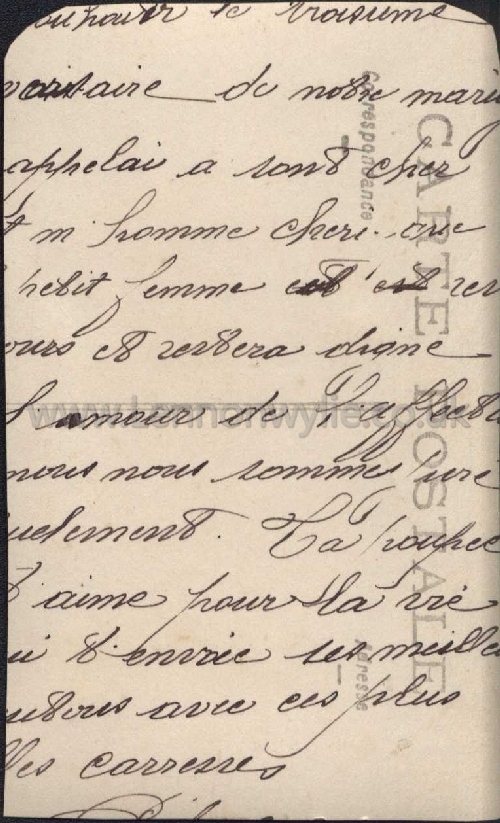 ouhaiter le troisieme
versaire de notre mariage
appelai a sont cher
t m homme cheri que
petit femme est est res
ours et restera digne
l amour de l affectu
nous nous sommes juré
uelement. Ta poupee
t aime pour la vie
ui t envoie ses meille
utous avec ces plus
lles carresses
CARTE POSTALE
Correspondance
Adresse
www.Lennonwylie.co.uk